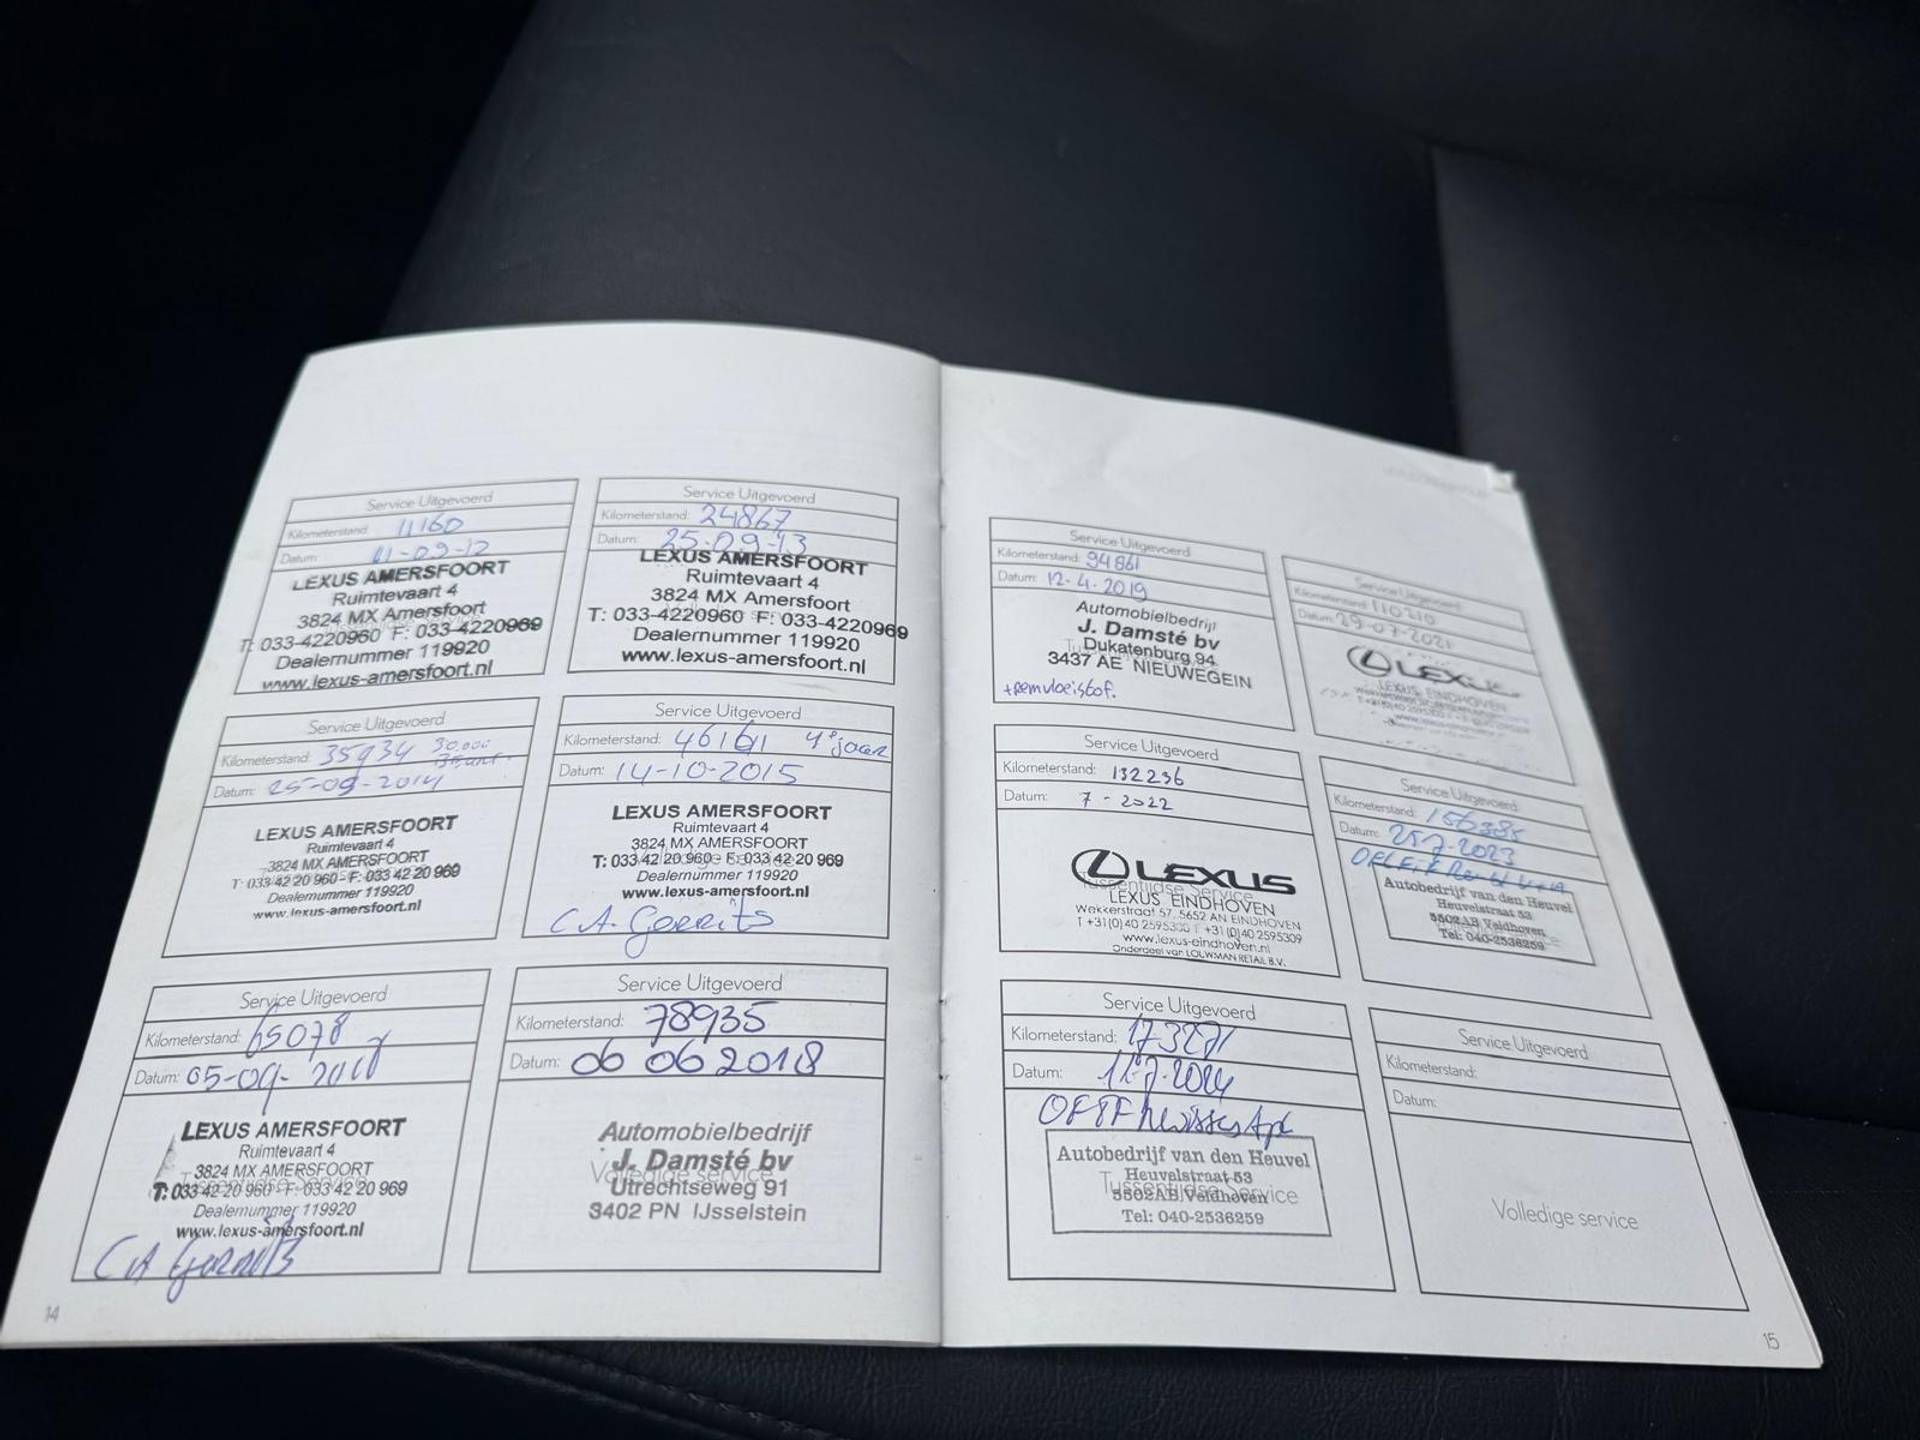 Service Uitgevoerd
Kilometerstand: 11160
Datum: 11-09-12
LEXUS AMERSFOORT
Ruimtevaart 4
3824 MX Amersfoort
T: 033-4220960 F: 033-4220969
Dealernummer 119920
www.lexus-amersfoort.nl
Service Uitgevoerd
Kilometerstand: 24867
Datum: 25-09-13
LEXUS AMERSFOORT
Ruimtevaart 4
3824 MX Amersfoort
T: 033-4220960 F: 033-4220969
Dealernummer 119920
www.lexus-amersfoort.nl
Service Uitgevoerd
Kilometerstand: 35934 30.000
Datum: 25-09-2014
LEXUS AMERSFOORT
Ruimtevaart 4
3824 MX AMERSFOORT
T: 033 42 20 960 - F: 033 42 20 969
Dealernummer 119920
www.lexus-amersfoort.nl
Service Uitgevoerd
Kilometerstand: 46161 4e jaar
Datum: 14-10-2015
LEXUS AMERSFOORT
Ruimtevaart 4
3824 MX AMERSFOORT
T: 033 42 20 960 - F: 033 42 20 969
Dealernummer 119920
www.lexus-amersfoort.nl
C.A. Gerrits
Service Uitgevoerd
Kilometerstand: 65078
Datum: 05-09-
LEXUS AMERSFOORT
Ruimtevaart 4
3824 MX AMERSFOORT
T: 033 42 20 960 - F: 033 42 20 969
Dealernummer 119920
www.lexus-amersfoort.nl
CA Gerrits
Service Uitgevoerd
Kilometerstand: 78935
Datum: 06 06 2018
Automobielbedrijf
J. Damsté bv
Volledige service
Utrechtseweg 91
3402 PN IJsselstein
14
Service Uitgevoerd
Kilometerstand: 94861
Datum: 12-4-2019
Automobielbedrijf
J. Damsté bv
Dukatenburg 94
3437 AE NIEUWEGEIN
+remvloeistof.
Service Uitgevoerd
Kilometerstand: 110210
Datum: 29-07-2021
LEXUS
LEXUS EINDHOVEN
Service Uitgevoerd
Kilometerstand: 132236
Datum: 7-2022
LEXUS
Tussentijdse Service
LEXUS EINDHOVEN
Wekkerstraat 57, 5652 AN EINDHOVEN
T +31(0)40 2595300 F +31(0)40 2595309
www.lexus-eindhoven.nl
Onderdeel van LOUWMAN RETAIL B.V.
Service Uitgevoerd
Kilometerstand: 156385
Datum: 25-7-2023
Autobedrijf van den Heuvel
Heuvelstraat 53
5502AB Veldhoven
Tel: 040-2536259
Service Uitgevoerd
Kilometerstand: 173271
Datum: 11-7-2024
Autobedrijf van den Heuvel
Heuvelstraat 53
Tussentijdse Service
5502AB Veldhoven
Tel: 040-2536259
Service Uitgevoerd
Kilometerstand:
Datum:
Volledige service
15